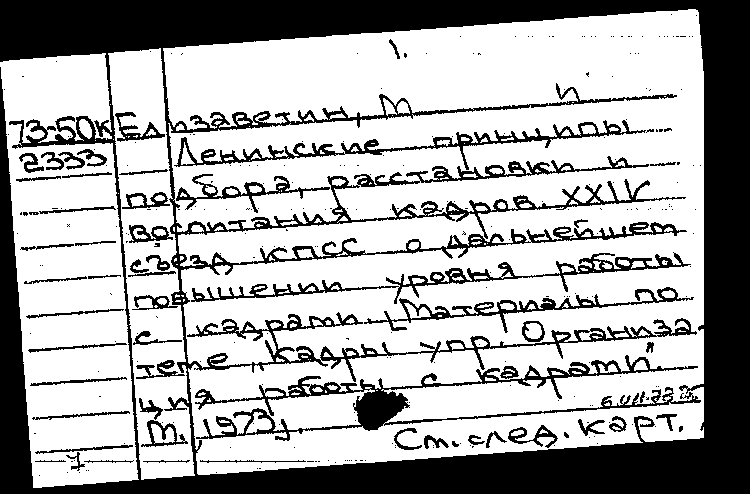 1.
73-50к Елизаветин, М П
2333 Ленинские принципы
подбора, расстановки и
воспитания кадров. XXIV
съезд КПСС о дальнейшем
повышении уровня работы
с кадрами. [Материалы по
теме „Кадры упр. Организа-
ция работы с кадрами".
М., 1973].
См. след. карт.